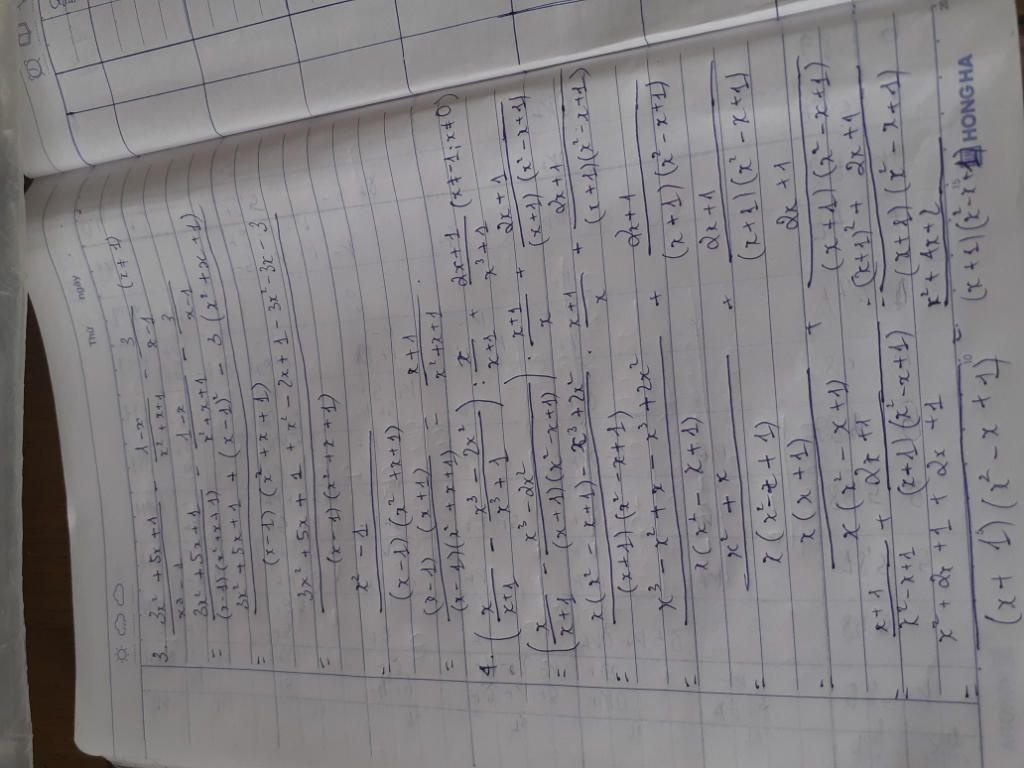 Thứ Ngày
3. (3x² + 5x + 1)/(x³ - 1) - (1-x)/(x² + x + 1) - 3/(x-1) (x ≠ 1)
= (3x² + 5x + 1)/((x-1)(x² + x + 1)) - (1-x)/(x² + x + 1) - 3/(x-1)
= (3x² + 5x + 1 + (x-1)² - 3(x² + x + 1))/((x-1)(x² + x + 1))
= (3x² + 5x + 1 + x² - 2x + 1 - 3x² - 3x - 3)/((x-1)(x² + x + 1))
= (x² - 1)/((x-1)(x² + x + 1))
= ((x-1)(x+1))/((x-1)(x² + x + 1)) = (x+1)/(x² + x + 1).
4. (x/(x+1) - (x³ - 2x²)/(x³ + 1)) : x/(x+1) + (2x+1)/(x³ + 1) (x ≠ 1; x ≠ 0)
= (x/(x+1) - (x³ - 2x²)/((x+1)(x² - x + 1))) . (x+1)/x + (2x+1)/((x+1)(x² - x + 1))
= (x(x² - x + 1) - x³ + 2x²)/((x+1)(x² - x + 1)) . (x+1)/x + (2x+1)/((x+1)(x² - x + 1))
= (x³ - x² + x - x³ + 2x²)/(x(x² - x + 1)) + (2x+1)/((x+1)(x² - x + 1))
= (x² + x)/(x(x² - x + 1)) + (2x+1)/((x+1)(x² - x + 1))
= (x(x+1))/(x(x² - x + 1)) + (2x+1)/((x+1)(x² - x + 1))
= (x+1)/(x² - x + 1) + (2x+1)/((x+1)(x² - x + 1)) = ((x+1)² + 2x + 1)/((x+1)(x² - x + 1))
= (x² + 2x + 1 + 2x + 1)/((x+1)(x² - x + 1)) = (x² + 4x + 2)/((x+1)(x² - x + 1))
HONGHA